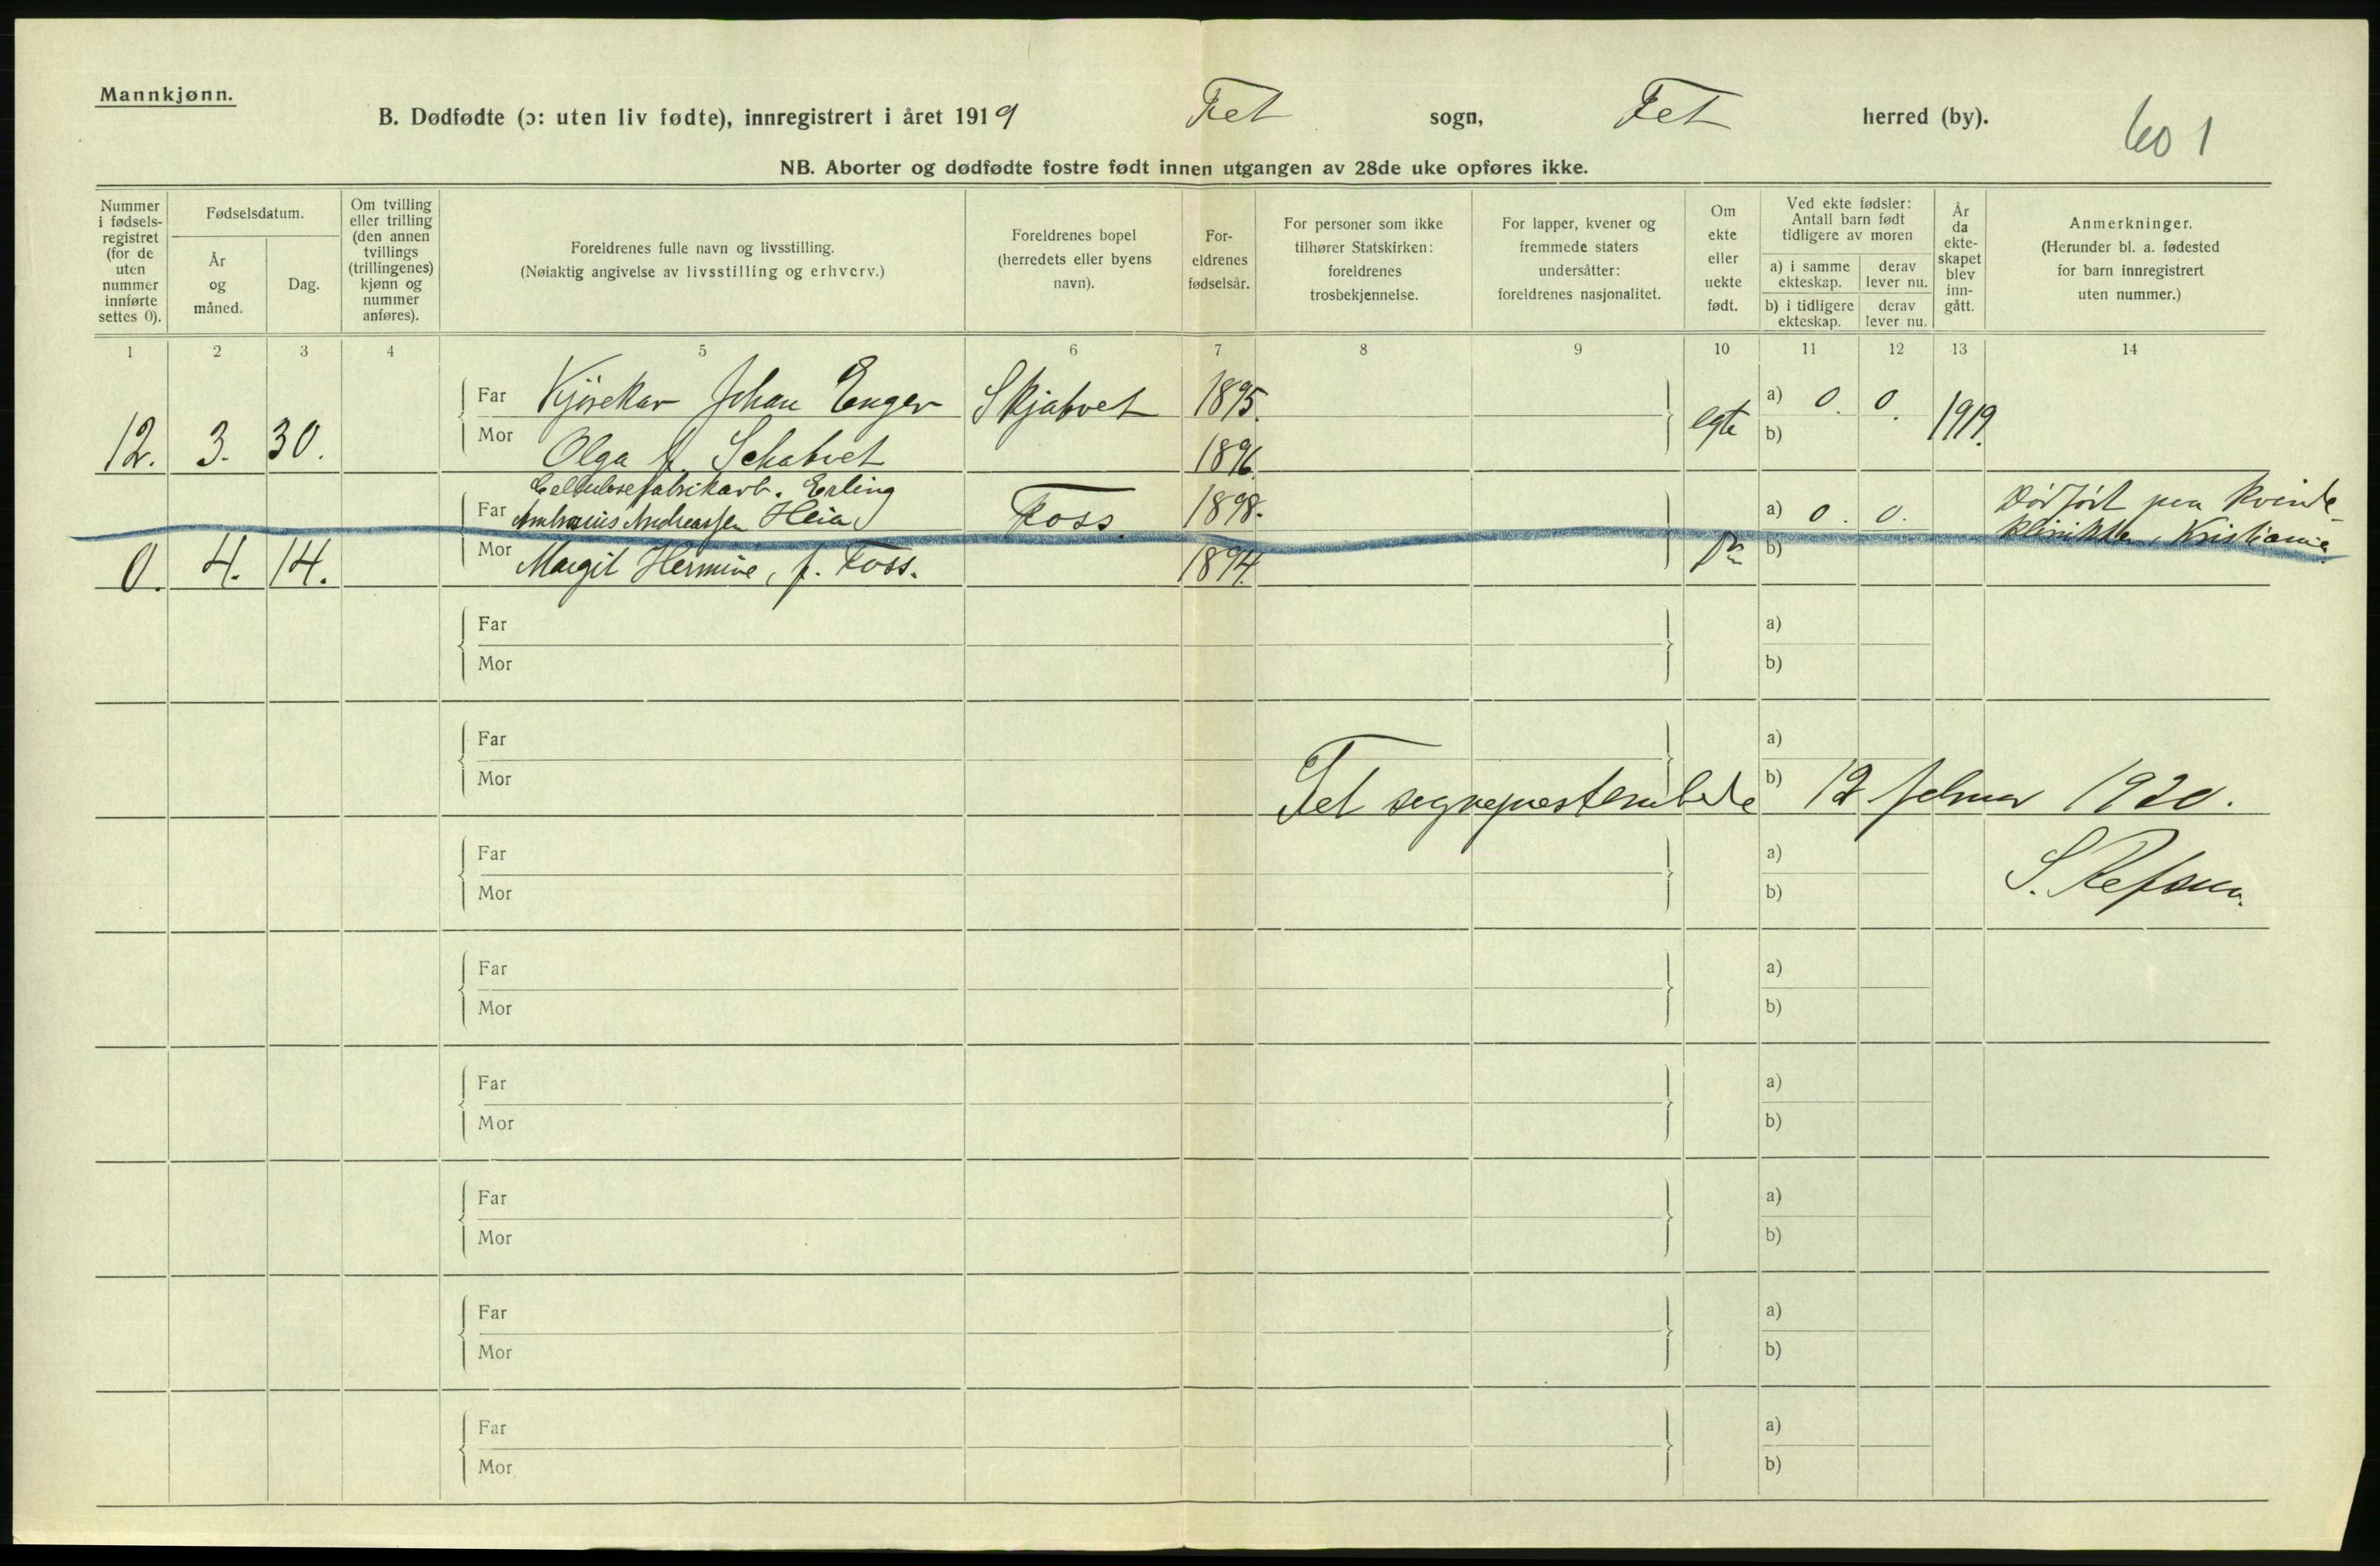 Mannkjønn.
B. Dødfødte (ɔ: uten liv fødte), innregistrert i året 1919 Fet sogn, Fet herred (by).
601
NB. Aborter og dødfødte fostre født innen utgangen av 28de uke opføres ikke.
Nummer i fødsels-registret (for de uten nummer innførte settes 0).
Fødselsdatum.
År og måned.
Dag.
Om tvilling eller trilling (den annen tvillings (trillingenes) kjønn og nummer anføres).
Foreldrenes fulle navn og livsstilling.
(Nøiaktig angivelse av livsstilling og erhverv.)
Foreldrenes bopel (herredets eller byens navn).
For-eldrenes fødselsår.
For personer som ikke tilhører Statskirken: foreldrenes trosbekjennelse.
For lapper, kvener og fremmede staters undersåtter: foreldrenes nasjonalitet.
Om ekte eller uekte født.
Ved ekte fødsler: Antall barn født tidligere av moren
a) i samme ekteskap.
derav lever nu.
b) i tidligere ekteskap.
derav lever nu.
År da ekte-skapet blev inn-gått.
Anmerkninger.
(Herunder bl. a. fødested for barn innregistrert uten nummer.)
1 2 3 4 5 6 7 8 9 10 11 12 13 14
Far Kjørekar Johan Enger Skjatvet 1895. a) 0. 0.
12. 3. 30. Mor Olga f. Schatvet 1896. egte b) 1919.
Cellulosefabrikarb. Erling
Far Ambrosius Andreassen Heia Foss 1898. a) 0. 0. Dødfødt paa Kvinde-
klinikken, Kristiania.
0. 4. 14. Mor Margit Hermine, f. Foss. 1894. b)
Far a)
Mor b)
Far a)
Mor b)
Fet sogneprestembede 12 februar 1920.
Far a)
Mor b)
S. Refsum.
Far a)
Mor b)
Far a)
Mor b)
Far a)
Mor b)
Far a)
Mor b)
Far a)
Mor b)